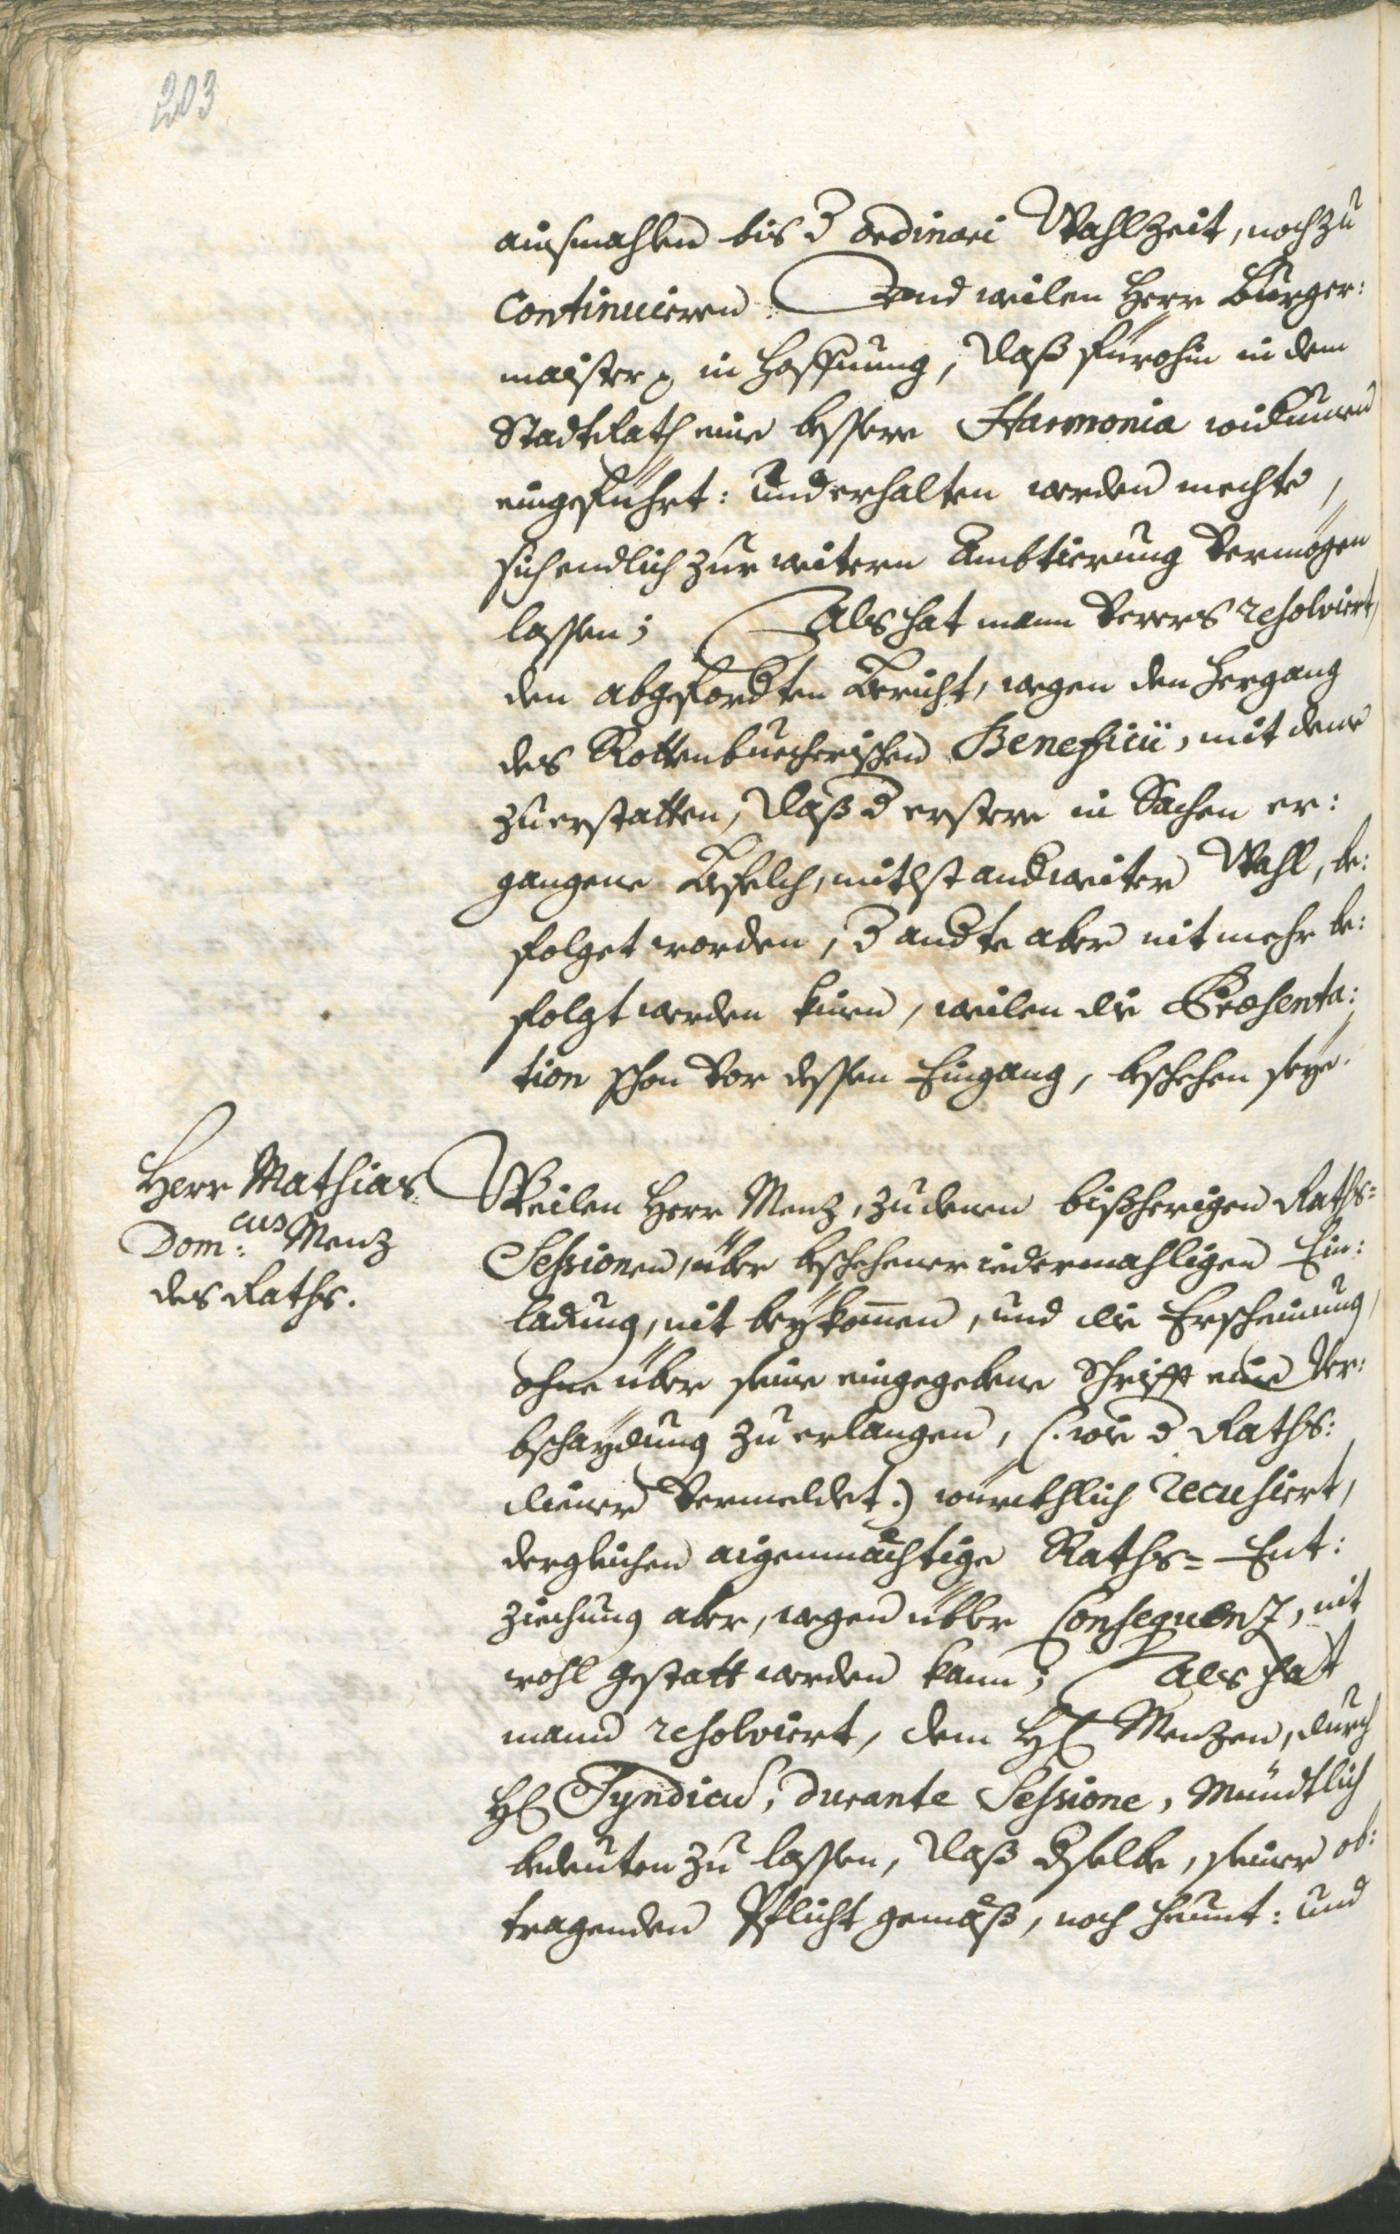 203
ainsmahlen bis d ordinari Wahlzeit, noch zu
Continuieren. Und weilen Herr Burger:
maister in Hoffnung, daß fürohin in dem
Stadtrath eine bessere Harmonia widerumen
eingeführt: und erhalten werden mechte,
sich endlich zur weitern Ambtierung vermögen
lassen; Als hat mann verers resolviert,
den abgeforderten Bericht, wegen den Hergang
des Rottenbuecherischen Beneficii, mit deme
zuerstatten, daß d erstere in Sachen er:
gangene Befelch, mitlst anderweiter Wahl, be:
folget worden, d andte aber nit mehr be:
folgt werden kinen, weilen die Præsenta:
tion schon vor dessen Eingang, beschehen seye.
Herr Mathias
Dom:cus Menz
des Raths.
Weilen Herr Menz, zu denen bißherigen Raths=
Sessionen, über beschehener iedermahligen Ein:
ladung, nit beykommen, und die Erscheinung,
ohne über seine eingegebene Schrifft eine Ver:
bschaydung zu erlangen, (: wie d Raths:
diener vermeldet:) würckhlich recusiert,
dergleichen aigenmächtige Raths= Ent:
ziechung aber, wegen übler Consequenz, nit
wohl gestatt werden kann; Als hat
mann resolviert, dem H Menzen, durch
H Syndicus, durante Sessione, Mündtlich
bedeuten zu lassen, daß dselbe, seiner ob:
tragenden Pflicht gemäß, noch heunt: und